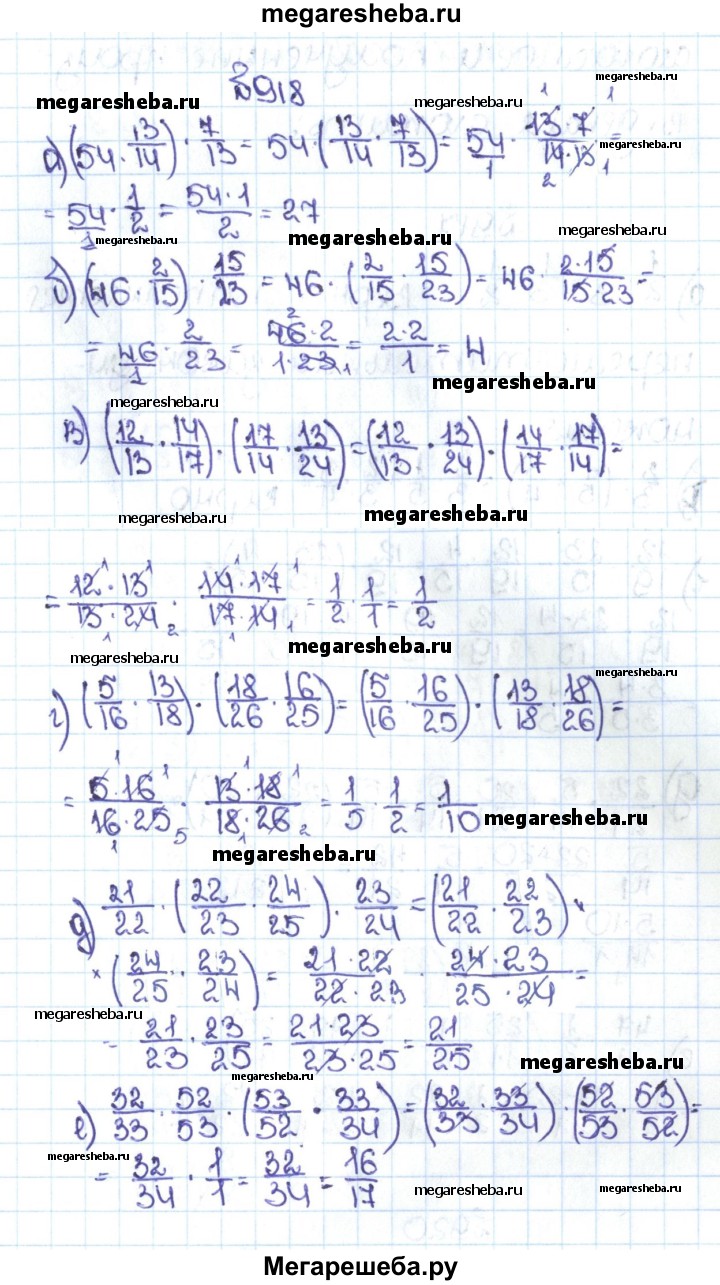 megaresheba.ru
№918
megaresheba.ru
megaresheba.ru megaresheba.ru
а) (54 · 13/14) · 7/13 = 54 · (13/14 · 7/13) = 54/1 · 13·7/14·13 =
megaresheba.ru
= 54/1 · 1/2 = 54·1/2 = 27
megaresheba.ru megaresheba.ru megaresheba.ru
б) (46 · 2/15) · 15/23 = 46 · (2/15 · 15/23) = 46 · 2·15/15·23 =
= 46/1 · 2/23 = 46·2/1·23 = 2·2/1 = 4
megaresheba.ru
megaresheba.ru
в) (12/13 · 14/17) · (17/14 · 13/24) = (12/13 · 13/24) · (14/17 · 17/14) =
megaresheba.ru megaresheba.ru
= 12·13/13·24 · 14·17/17·14 = 1/2 · 1/1 = 1/2
megaresheba.ru
megaresheba.ru megaresheba.ru
г) (5/16 · 13/18) · (18/26 · 16/25) = (5/16 · 16/25) · (13/18 · 18/26) =
= 5·16/16·25 · 13·18/18·26 = 1/5 · 1/2 = 1/10
megaresheba.ru
megaresheba.ru
д) 21/22 · (22/23 · 24/25) · 23/24 = (21/22 · 22/23) ×
× (24/25 · 23/24) = 21·22/22·23 · 24·23/25·24 =
megaresheba.ru
= 21/23 · 23/25 = 21·23/23·25 = 21/25
megaresheba.ru
megaresheba.ru
е) 32/33 · 52/53 · (53/52 · 33/34) = (32/33 · 33/34) · (52/53 · 53/52) =
megaresheba.ru
= 32/34 · 1/1 = 32/34 = 16/17
megaresheba.ru megaresheba.ru
Мегарешеба.ру